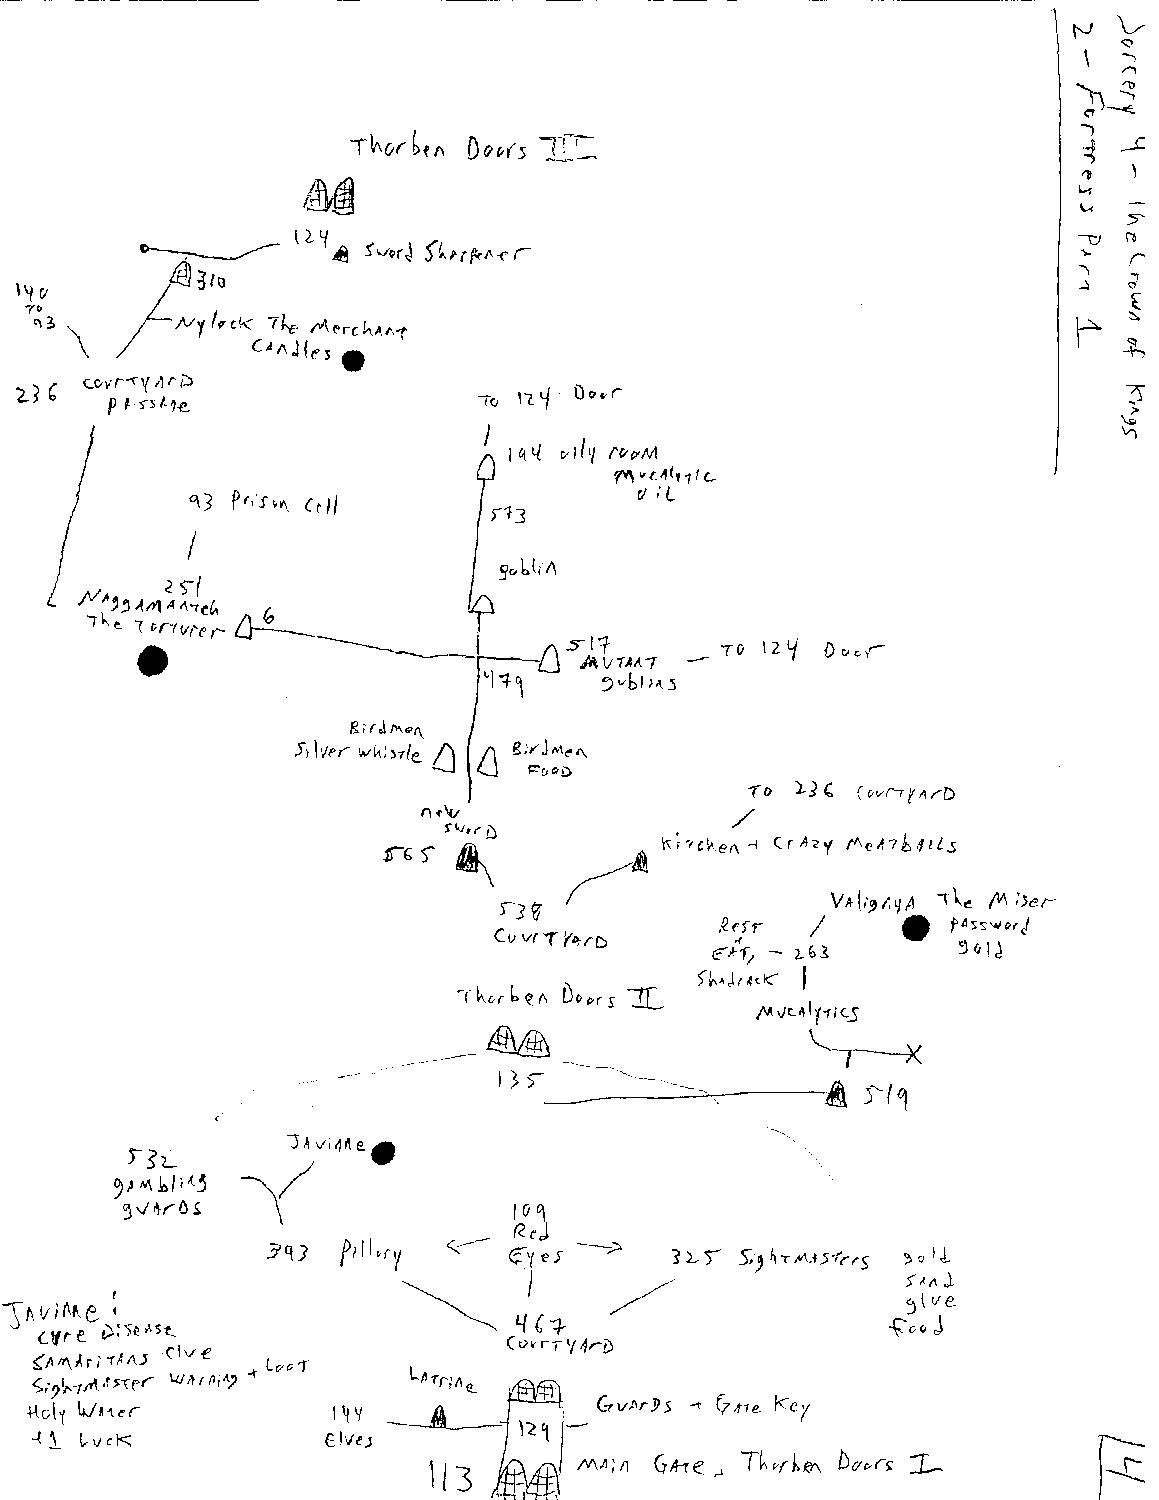 Sorcery 4 - The Crown of Kings
2 - Fortress Part 1
Thorben Doors III
124
Sword Sharpener
310
140
TO
93
Nylock The Merchant
Candles
236
COURTYARD
PASSAGE
TO 124 Door
194 oily room
Mucalytic
oil
573
93 Prison Cell
goblin
251
NAGGAMANTEH
The Torturer
6
517
MUTANT
goblins
TO 124 Door
479
Birdmen
Silver Whistle
Birdmen
FOOD
TO 236 COURTYARD
new
SWORD
565
Kitchen + CRAZY MEATBALLS
538
COURTYARD
VALIGNYA The Miser
password
gold
REST
EAT,
Shadrack
263
Thorben Doors II
MUCALYTICS
135
519
JAVINNE
532
GAMBLING
GUARDS
109
Red
Eyes
393 Pillory
325 SIGHTMASTERS
gold
SAND
glue
Food
467
COURTYARD
JAVINNE:
CURE DISEASE
SAMARITANS CLUE
SIGHTMASTER WARNING + LOOT
Holy Water
+1 Luck
LATRINE
144
Elves
129
GUARDS + GATE KEY
113
MAIN GATE, Thorben Doors I
4